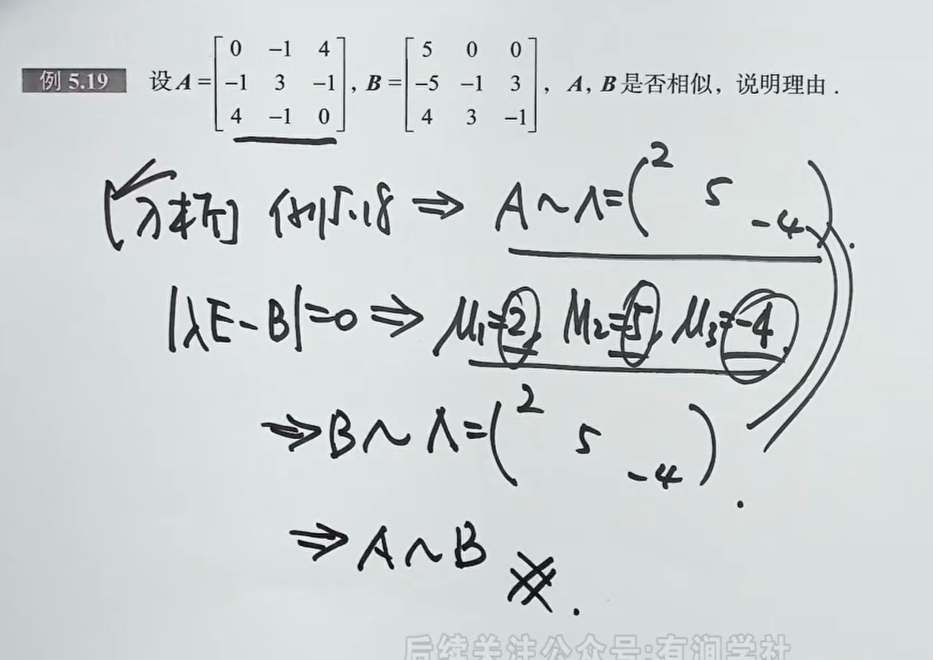 例 5.19 设 A = [0 -1 4; -1 3 -1; 4 -1 0], B = [5 0 0; -5 -1 3; 4 3 -1], A, B 是否相似，说明理由.
[分析] 例5.18 ⇒ A ~ Λ = (2 5 -4).
|λE - B| = 0 ⇒ μ₁ = 2, μ₂ = 5, μ₃ = -4.
⇒ B ~ Λ = (2 5 -4).
⇒ A ~ B ※.
后续关注公众号:有洞学社